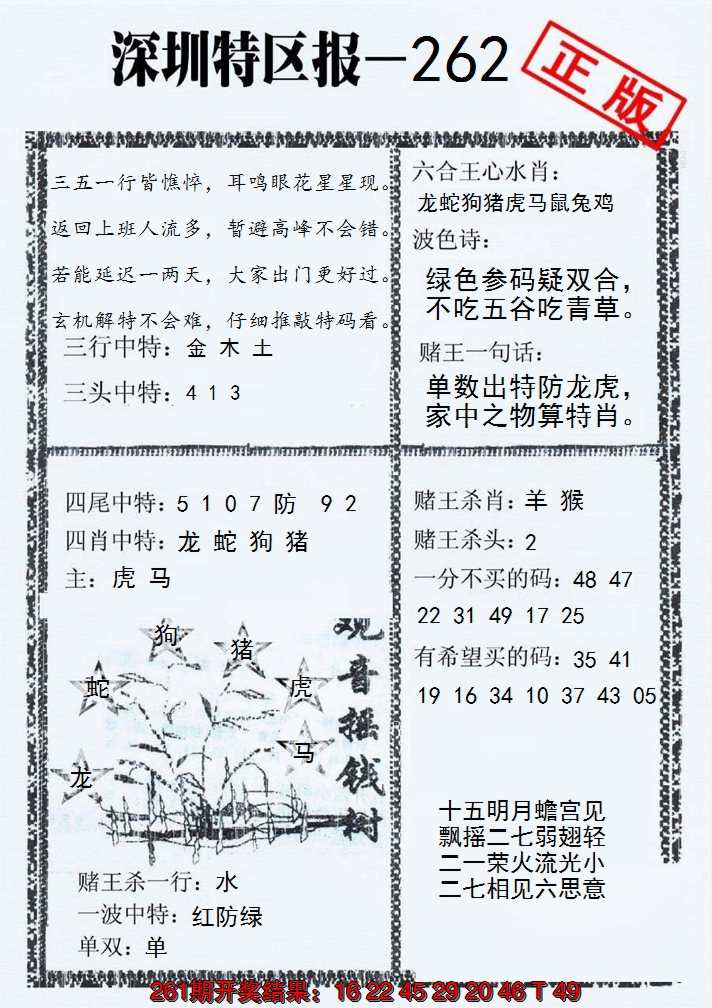 深圳特区报—262
正版
三五一行皆憔悴，耳鸣眼花星星现。
返回上班人流多，暂避高峰不会错。
若能延迟一两天，大家出门更好过。
玄机解特不会难，仔细推敲特码看。
三行中特：金 木 土
三头中特：4 1 3
六合王心水肖：
龙蛇狗猪虎马鼠兔鸡
波色诗：
绿色参码疑双合，
不吃五谷吃青草。
赌王一句话：
单数出特防龙虎，
家中之物算特肖。
四尾中特：5 1 0 7 防 9 2
四肖中特：龙 蛇 狗 猪
主：虎 马
狗
猪
蛇
虎
龙
马
观音摇钱树
赌王杀一行：水
一波中特：红防绿
单双：单
赌王杀肖：羊 猴
赌王杀头：2
一分不买的码：48 47
22 31 49 17 25
有希望买的码：35 41
19 16 34 10 37 43 05
十五明月蟾宫见
飘摇二七弱翅轻
二一荣火流光小
二七相见六思意
261期开奖结果：16 22 45 29 20 46 T 49